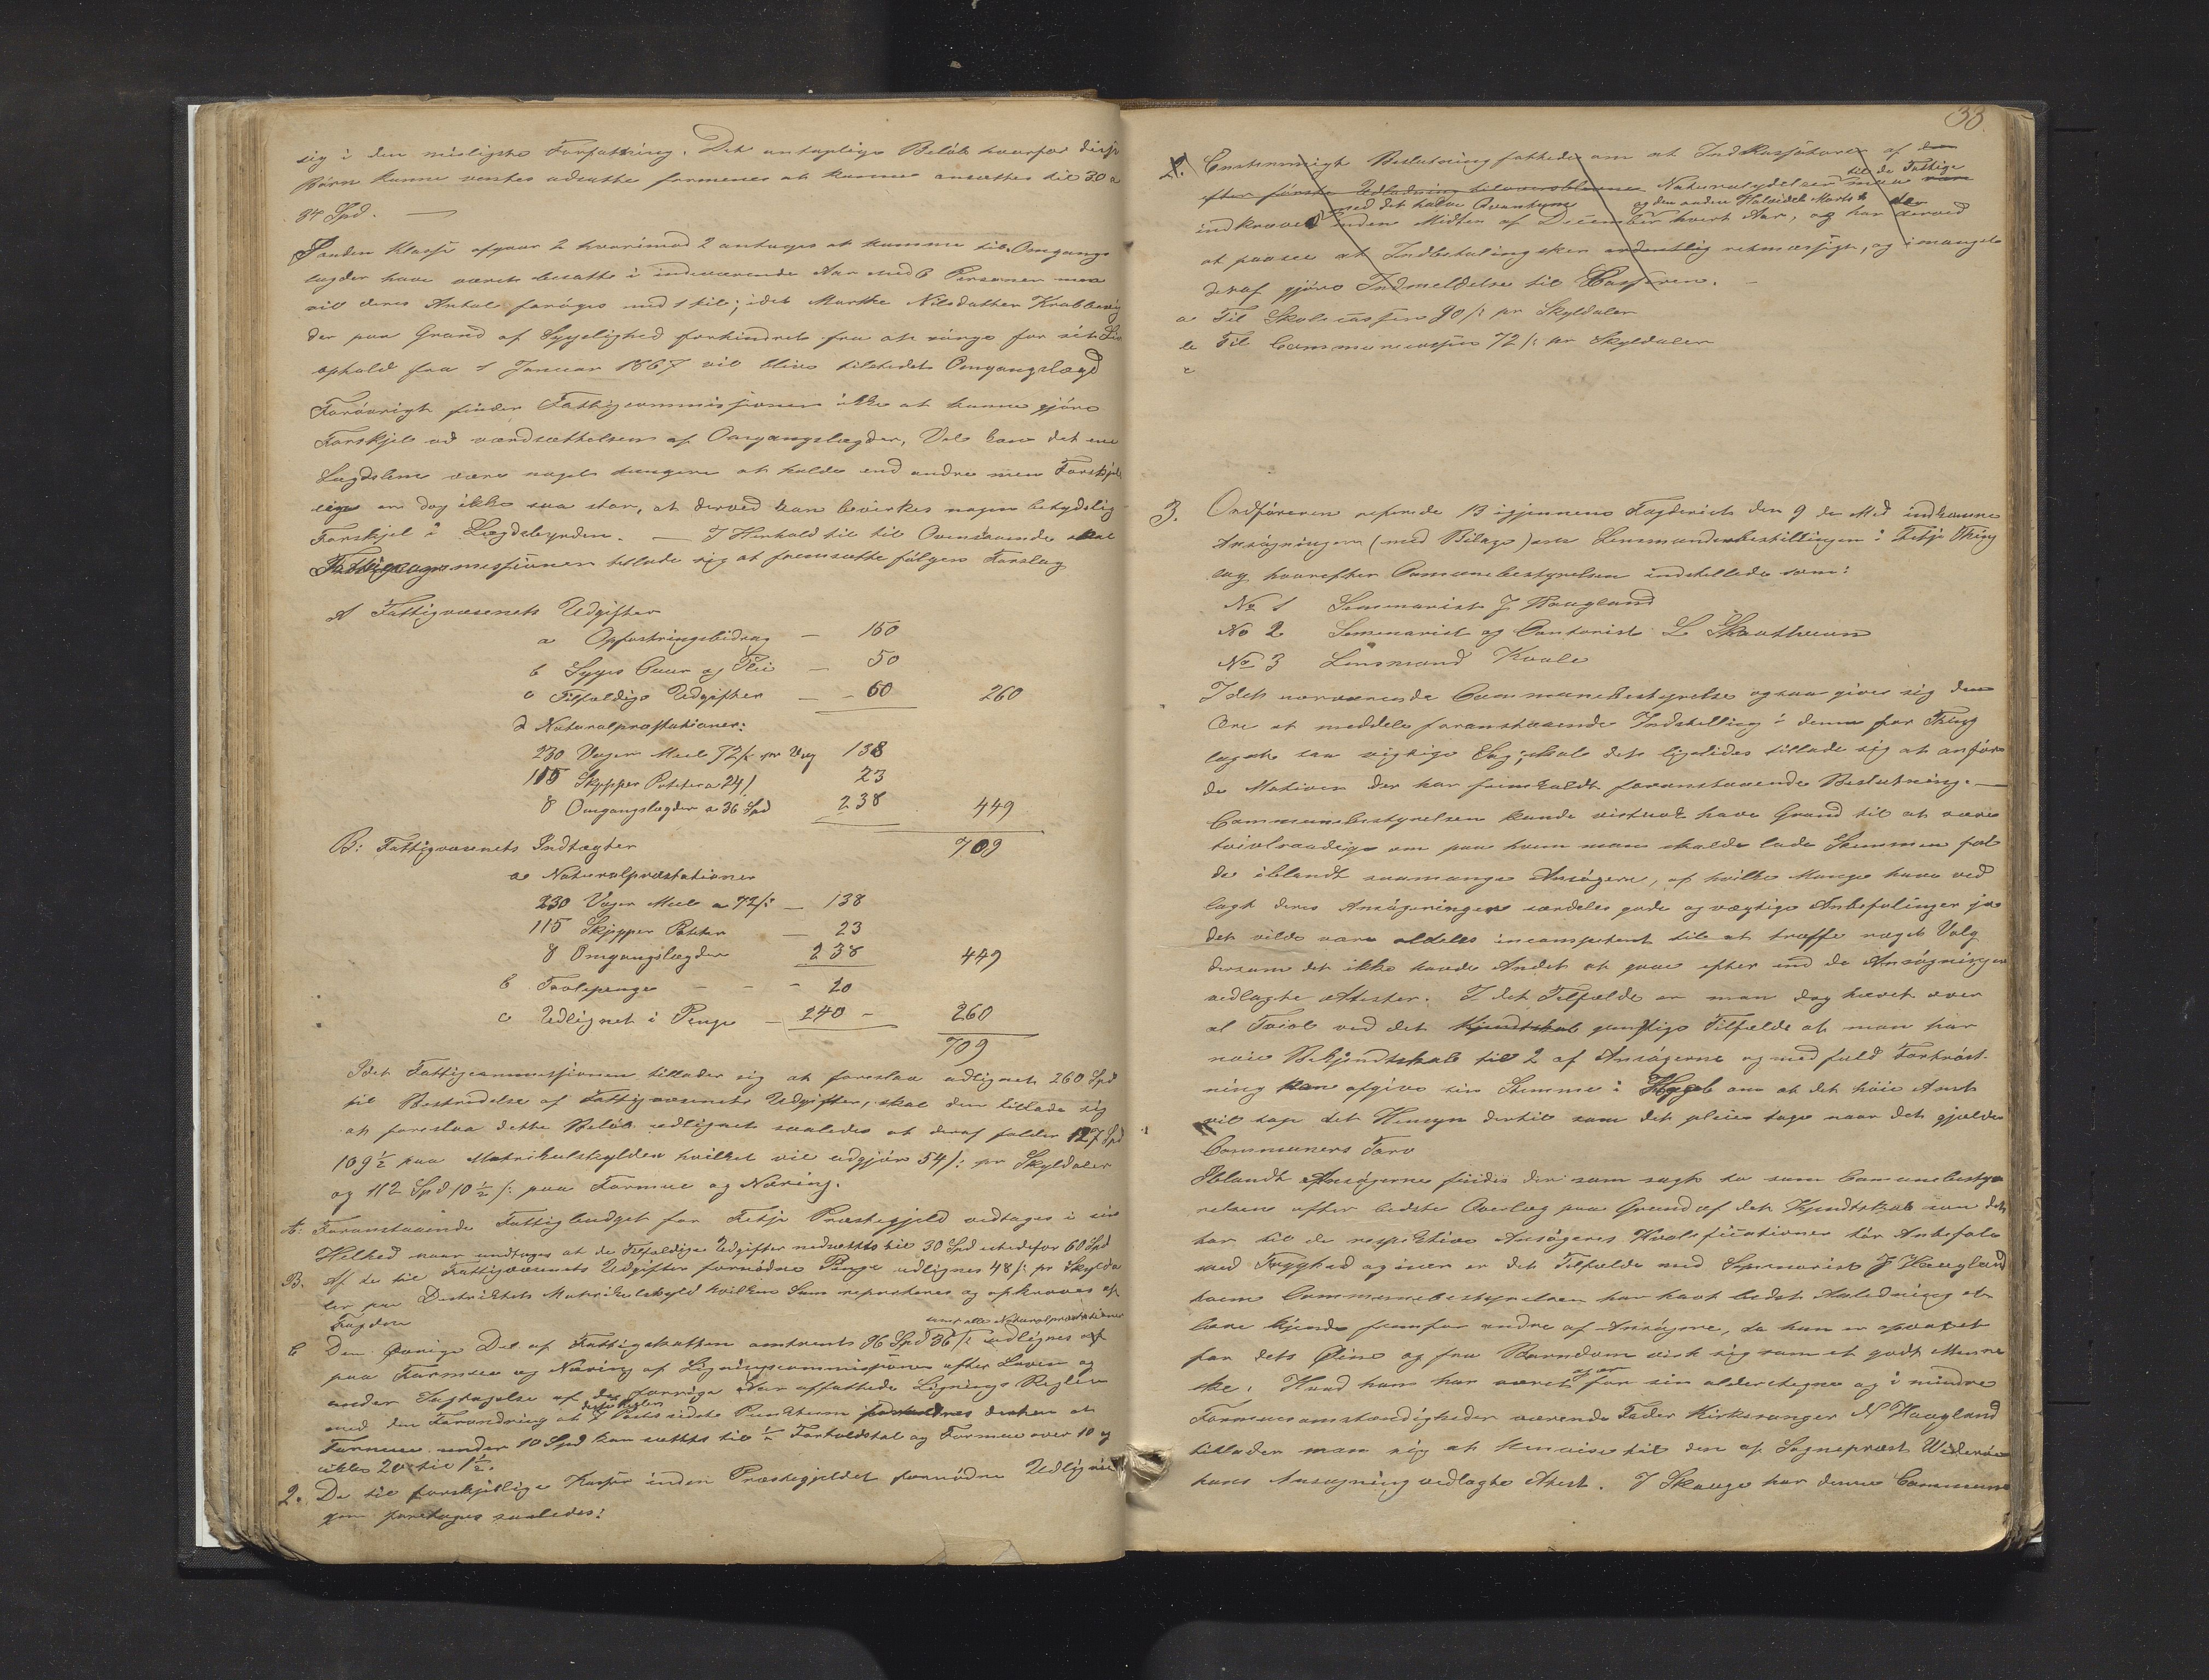 sig i den misligste Forfatning. Det antagelige Beløb hvorfor disse
Børn kunne ventes udsatte formenes at kunne ansættes til 30 a
34 Spd. —
I anden Klasse afgaar 2 hvorimod 2 antages at komme til. Omgangs
lægder have været besatte i indeværende Aar med 6 Personer men
vil deres Antal forøges med 1 til; idet Marthe Nilsdatter Krabbevig
der paa Grund af Sygelighed forhindret fra at sørge for sit Liv
ophold fra 1 Januar 1867 vil blive tilstedet Omgangslægd
Forøvrigt finder Fattigcommissionen ikke at kunne gjøre
Forskjel ved værdsættelsen af Omgangslægder, Vel kan det ene
Lægdslem være noget tungere at holde end andre men Forskjel
len er dog ikke saa stor, at derved kan bevirkes nogen betydelig
Forskjel i Lægdsbyrden. — I Henhold til til Ovenstaaende skal
Fattigcommissionen tillade sig at fremsætte følgen Forslag
A Fattigvæsenets Udgifter
a Opfostringsbidrag — 150
b Syges Cuur og Pleie — 50
c Tilfældige Udgifter — 60 260
d Naturalpræstationer:
230 Voger Meel 72 s: pr Vog 138
115 Skjepper Poteter a 24 s 23
8 Omgangslægder a 36 Spd 238 449
B: Fattigvæsenets Indtægter 709
a Naturalpræstationer
230 Voger Meel a 72 s: — 138
115 Skjepper Poteter — 23
8 Omgangslægder 238 449
b Tavlepenge — — — 20
c Udlignet i Penge — 240 — 260
709
Idet Fattigcommissionen tillader sig at foreslaa udlignet 260 Spd
til Bestridelse af Fattigvæsenets Udgifter, skal den tillade sig
at foreslaa dette Beløb udlignet saaledes at deraf falder 127 Spd
109 ½ paa Matrikulskylden hvilket vil udgjør 54 s: pr Skyldaler
og 112 Spd 10 ½ s: paa Formue og Næring.
A: Foranstaaende Fattigbudget for Fitje Præstegjeld vedtages i sin
Helhed naar undtages at de Tilfældige Udgifter nedsættes til 30 Spd istedetfor 60 Spd
B. Af de til Fattigvæsenets Udgifter fornødne Penge udlignes 48 s: pr Skylda
ler paa Distriktets Matrikulskyld hvilken Sum reparteres og opkræves af
Fogden
samt alle Naturalpræstationer
C Den Øvrige Del af Fattigskatten omtrent 96 Spd 36 s: udlignes af
paa Formue og Næring af Ligningscommissionen efter Loven og
under Iagtagelse af de forrige Aar affattede Lignings Regler
disse Regler
med den Forandring at 7 Posts sidste Punktum at
Formue under 10 Spd kan sættes til ½ Forholdstal og Formue over 10 og
ikke 20 til 1½.
2. De til forskjellige Kasser inden Præstegjeldet fornødne Udlignin
gen foretages saaledes:
33.
2. Eenstemmigt Beslutning fattedes om at Indkassatorer af den
til de Fattige
efter første Udlodning tilovers blevne Naturalydelser maa
med det halve Qvantum og den anden Halvdel Marts
indkræves inden Midten af December hvert Aar, og har derved
at paasee at Indbetaling skeer ordentlig retmæssigt, og i mangel
deraf gjøre Indmeldelse til Cassereren. —
a Til Skolecassen 90 s: pr Skyldaler
b Til Communecassen 72 s: pr Skyldaler
c
3. Ordføreren refererede 13 igjennem Fogderiet den 9 de Md indkomne
Ansøgninger (med Bilage) om Lensmandsbestillingen i Fitje Thing
lag hvorefter Communebestyrelsen indstillede som:
No 1 Seminarist J Haugland
No 2 Seminarist og Contorist L Skaathuun
No 3 Lensmand Kvale
Idet nærværende Communebestyrelse ogsaa giver sig den
Ære at meddele foranstaaende Indstilling i denne for Thing
laget saa vigtige Sag; skal det ligeledes tillade sig at anføre
de Motiver der har fremkaldt foranstaaende Beslutning. —
Communebestyrelsen kunde vistnok have Grund til at være
tvivlraadige om paa hvem man skulde lade Stemmen fal
de iblandt saamange Ansøgere, af hvilke Mange have ved
lagt deres Ansøgninger særdeles gode og vægtige Anbefalinger ja
det vilde være aldeles incompetent til at træffe noget Valg
dersom det ikke havde Andet at gaae efter end de Ansøgningen
vedlagte Attester. I det Tilfælde er man dog hævet over
al Tvivl ved det gunstige Tilfælde at man har
nøie Bekjendtskab til 2 af Ansøgerne og med fuld Fortrøst-
ning kan afgive sin Stemme i Haab om at det høie Amt
vil tage det Hensyn dertil som det pleier tage naar det gjelder
Communers Tarv
Iblandt Ansøgerne findes der som sagt to som Communebesty-
relsen efter bedste Overlæg paa Grund af det Kjendtskab som det
har til de respektive Ansøgeres Kvalificationer tør Anbefale
med Tryghed og især er det Tilfælde med Seminarist J Haugland
hvem Communebestyrelsen har havt bedst Anledning at
lære kjende fremfor andre af Ansøgerne, da han er opvoxet
for dets Øine og fra Barndom vist sig som et godt Menne
og er
ske. Hvad han har været for sin alderstegne og i mindre
Formuesomstændigheder værende Fader Kirkesanger N Haugland
tillader man sig at henvise til den af Sognepræst Widerøe
hans Ansøgning vedlagte Attest. I Skauge har denne Commune